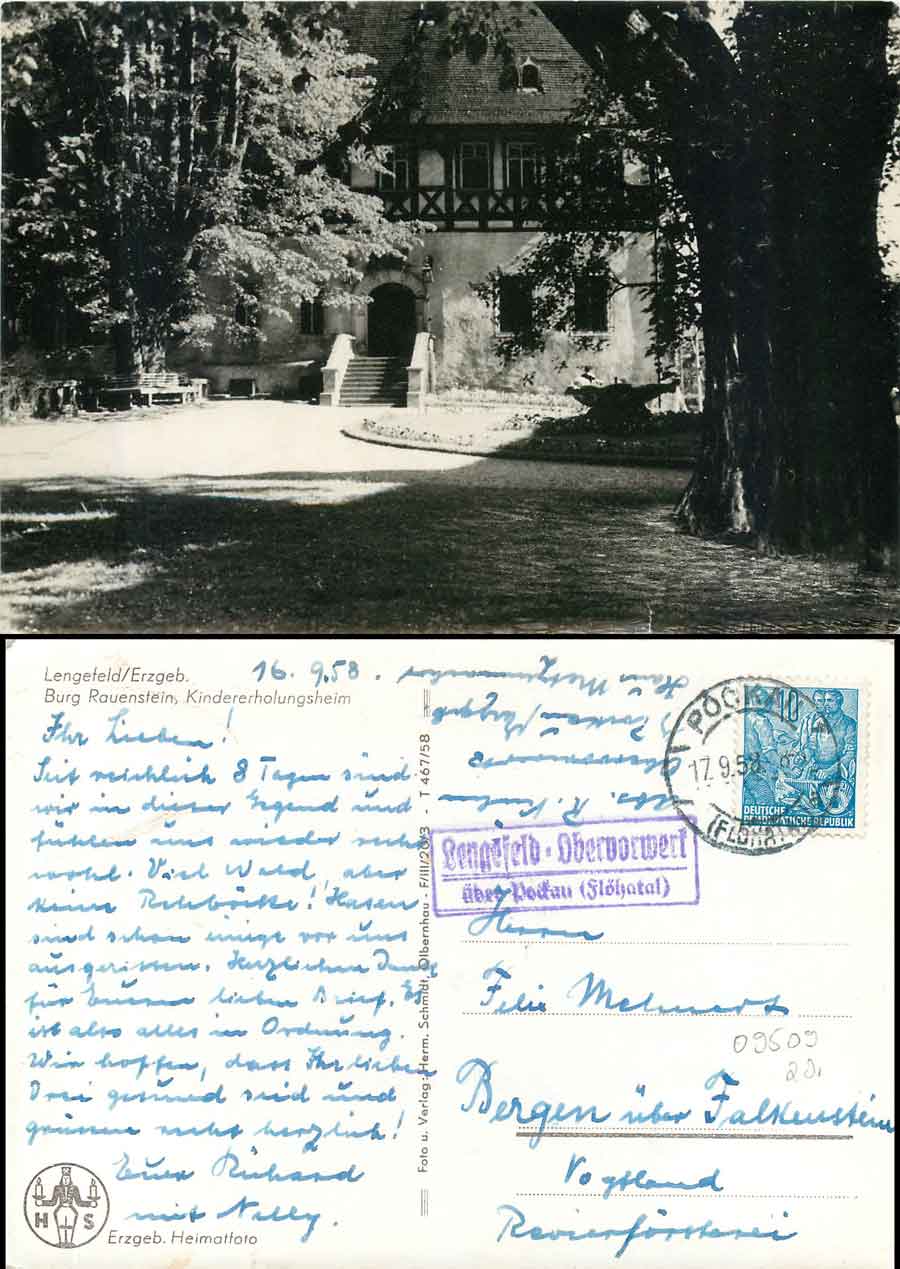 Lengefeld/Erzgeb.
Burg Rauenstein, Kindererholungsheim
16. 9. 58.
Ihr Lieben!
Seit reichlich 8 Tagen sind
wir in dieser Gegend und
fühlen uns wieder recht
wohl. Viel Wald, aber
keine Rehböcke! Hasen
sind schon einige vor uns
ausgerissen. Herzlichen Dank
für Eueren lieben Brief. Es
ist also alles in Ordnung.
Wir hoffen, dass Ihr lieben
Drei gesund seid und
grüssen recht herzlich!
Euer Richard
mit Nelly.
H S
Erzgeb. Heimatfoto
Foto u. Verlag: Herm. Schmidt, Olbernhau - F/III/2013 - T 467/58
Abs. R.
Obervorwerk
Haus
POCKAU
17.9.58
(FLÖHATAL)
10
DEUTSCHE
DEMOKRATISCHE REPUBLIK
Lengefeld-Obervorwerk
über Pockau (Flöhatal)
Herrn
Felix Mehnert
09509
20.
Bergen über Falkenstein
Vogtland
Revierförsterei